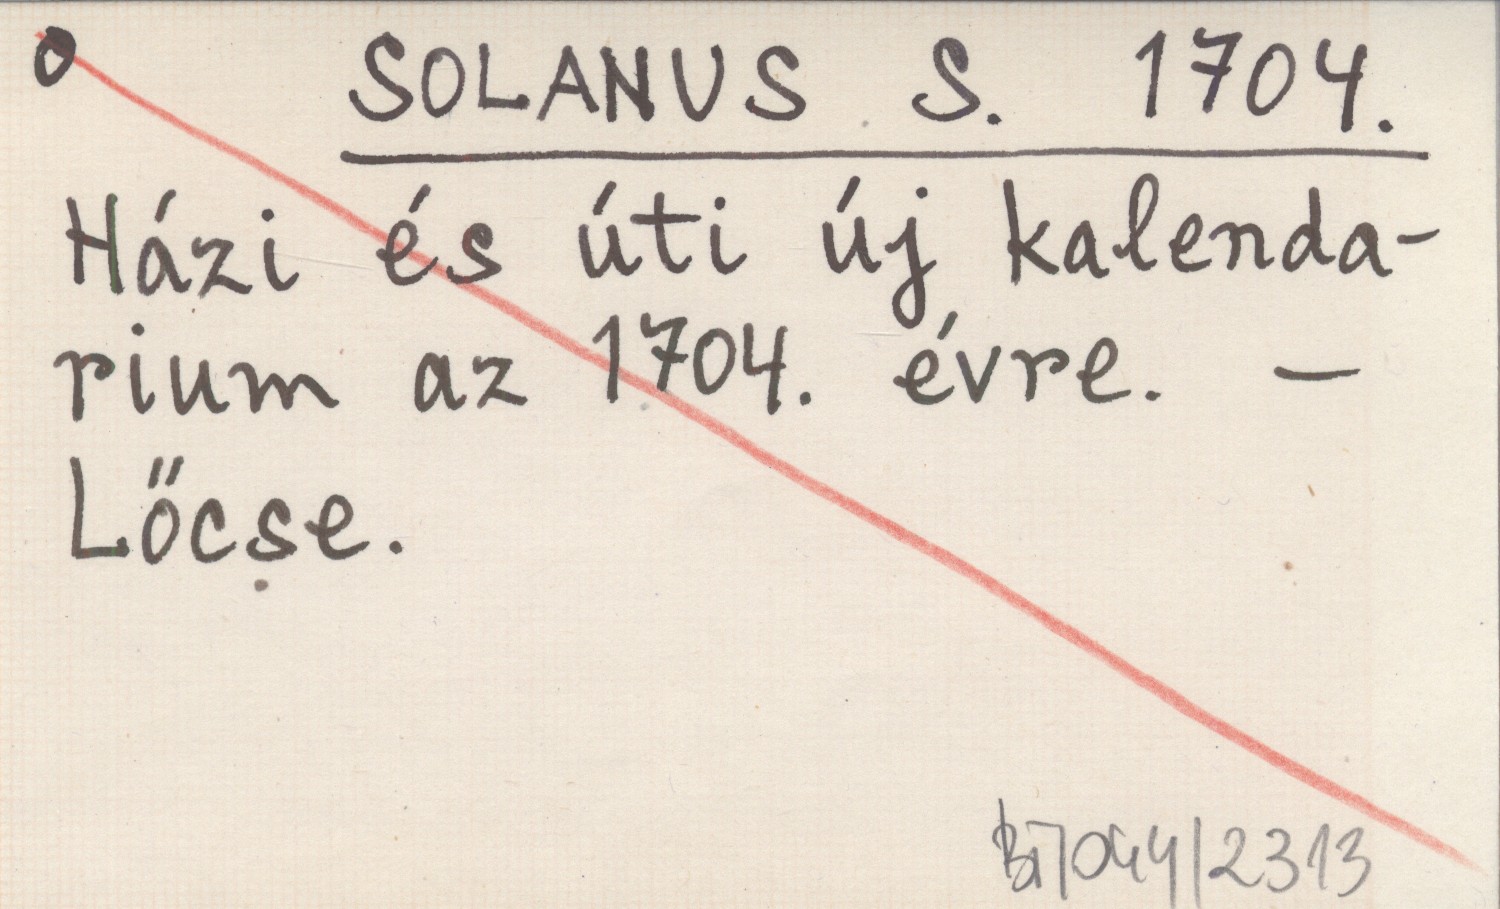 o SOLANUS S. 1704.
Házi és úti új kalenda-
rium az 1704. évre. —
Lőcse.
Bi/044/2313